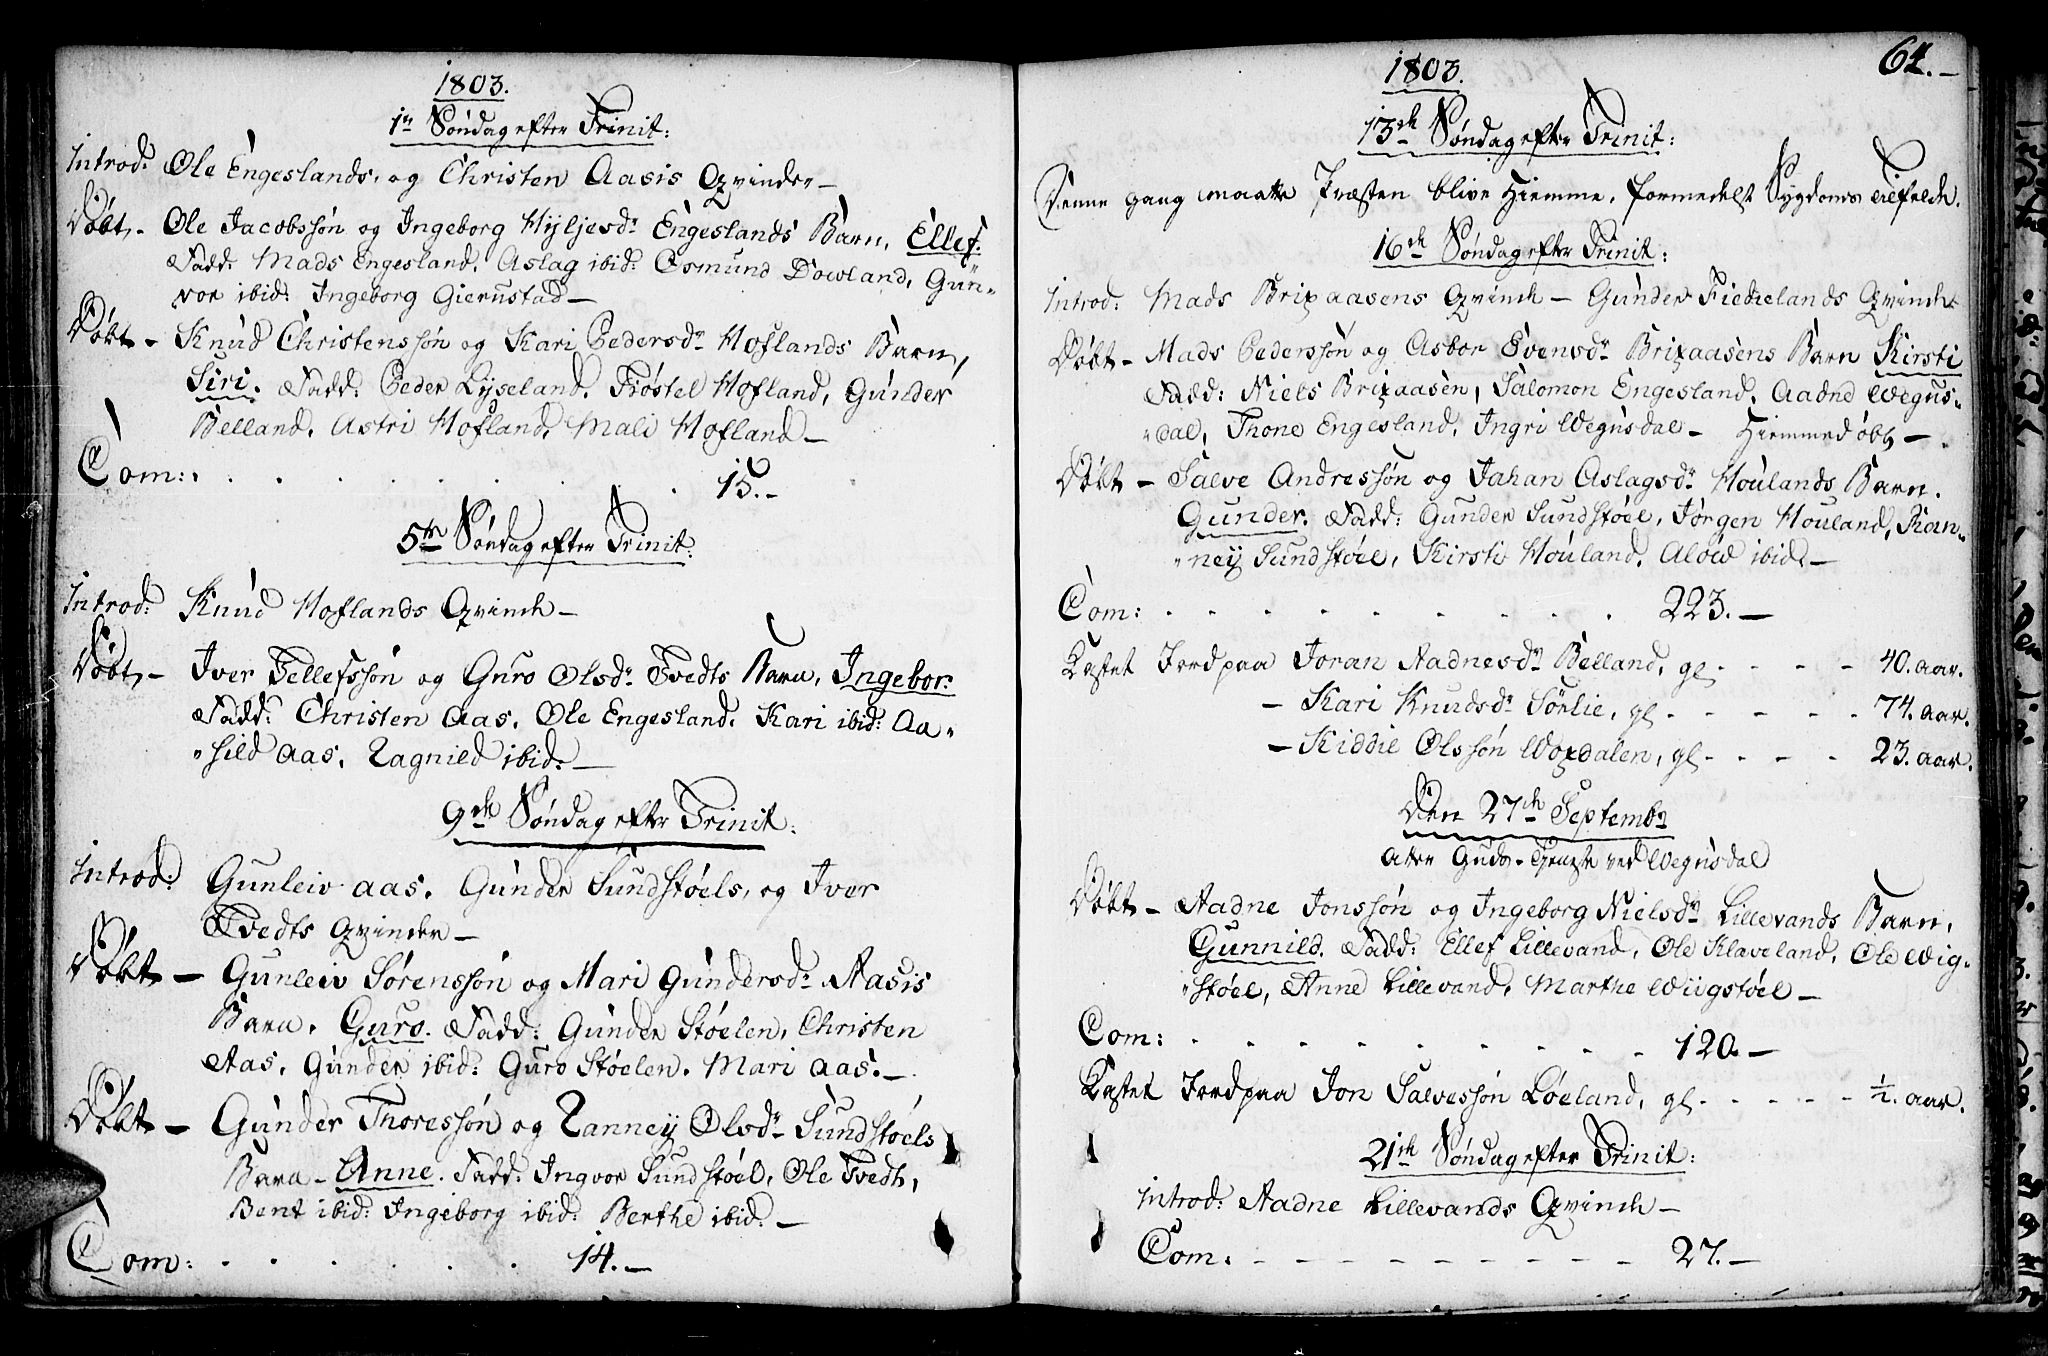 1803.
1ste Søndag efter Trinit:
Introd: Ole Engeslands, og Christen Aasis Qvinder —
Døbt – Ole Jacobssøn og Ingeborg Hyljesdr Engeslands Barn, Ellef.
Fadd: Mads Engesland, Aslag ibid: Osmund Dowland, Gun-
vor ibid: Ingeborg Gierustad —
Døbt – Knud Christenssøn og Kari Pedersdr Hoflands Barn,
Siri. Fadd: Peder Lyseland, Frøstel Hofland, Gunder
Belland, Astri Hofland, Mali Hofland —
Com: . . . . . . . 15. –
5te Søndag efter Trinit:
Introd: Knud Hoflands Qvinde —
Døbt – Iver Tellefssøn og Guro Olsdr Tvedts Barn, Ingebor:
Fadd: Christen Aas, Ole Engesland, Kari ibid: Aa-
sild Aas, Ragnild ibid: —
9de Søndag efter Trinit:
Introd: Gunleiv Aas, Gunder Sundstøels, og Iver
Tvedts Qvinder —
Døbt – Gunleiv Sørenssøn og Mari Gundersdr Aasis
Barn, Guro. Fadd: Gunder Støelen, Christen
Aas, Gunder ibid: Guro Støelen, Mari Aas. —
Døbt – Gunder Thoressøn og Ranney Olsdr Sundstøels
Barn – Anne. Fadd: Ingvor Sundstøel, Ole Tvedt,
Bent ibid: Ingeborg ibid: Berthe ibid: —
Com: . . . . . . 14. —
64. –
1803.
13de Søndag efter Trinit:
Denne gang maatte Præsten blive Hiemme, formedelst Sygdoms tilfelde.
16de Søndag efter Trinit:
Introd: Mads Brixaasens Qvinde – Gunder Fiedielands Qvinde
Døbt – Mads Pederssøn og Asbor Evensdr Brixaasens Barn Kirsti
Fadd: Niels Brixaasen, Salomon Engesland, Aadne Wegus-
dal, Thone Engesland, Ingri Wegusdal – Hiemmedøbt —
Døbt – Salve Andressøn og Johan Aslagsdr Houlands Barn.
Gunder. Fadd: Gunder Sundstøel, Jørgen Houland, Ran-
ney Sundstøel, Kirsti Houland, Aløw ibid: —
Com: . . . . . . . . . 223. —
Kastet Jord paa Joran Aadnesdr Belland, gl . . . . 40. aar.
– Kari Knudsdr Sørlie, gl . . . . . 74. aar.
– Kiddil Olssøn Woxdalen, gl . . . . 23. aar.
Den 27de Septembr
Atter Guds-Tjeneste ved Wegusdal
Døbt – Aadne Jonssøn og Ingeborg Nielsdr Lillevands Barn,
Gunnild. Fadd: Ellef Lillevand, Ole Klaveland, Ole Wig-
støel, Anne Lillevand, Marthe Wiigstøel —
Com: . . . . . . . . . 120. —
Kastet Jord paa Jon Salvessøn Løeland, gl . . . . . ½. aar.
21de Søndag efter Trinit:
Introd: Aadne Lillevands Qvinde —
Com: – – – – – – – – 27. —